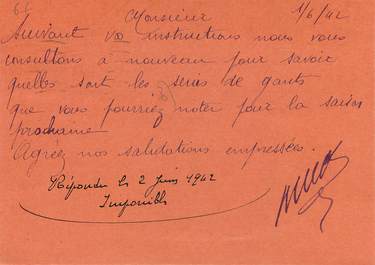 Monsieur 1/6/42
Suivant vos instructions nous vous
consultons à nouveau pour savoir
quelles sont les séries de gants
que vous pourriez noter pour la saison
prochaine
Agréez nos salutations empressées.
Répondu le 2 Juin 1942
Impossible